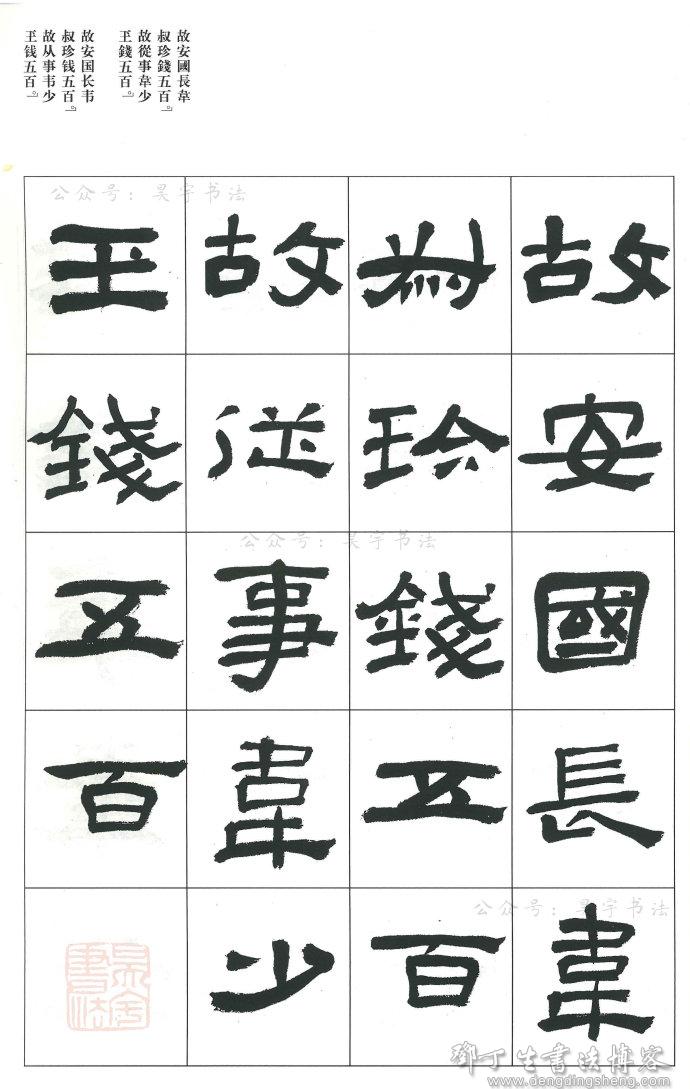 故安國長韋
叔珍錢五百。
故從事韋少
玊錢五百。
故安国长韦
叔珍钱五百。
故从事韦少
玊钱五百。
故安國長韋
叔珍錢五百
故從事韋少
玊錢五百
公众号：昊宇书法
公众号：昊宇书法
公众号：昊宇书法
昊宇書法
鄧丁生書法博客
www.dengdingsheng.com